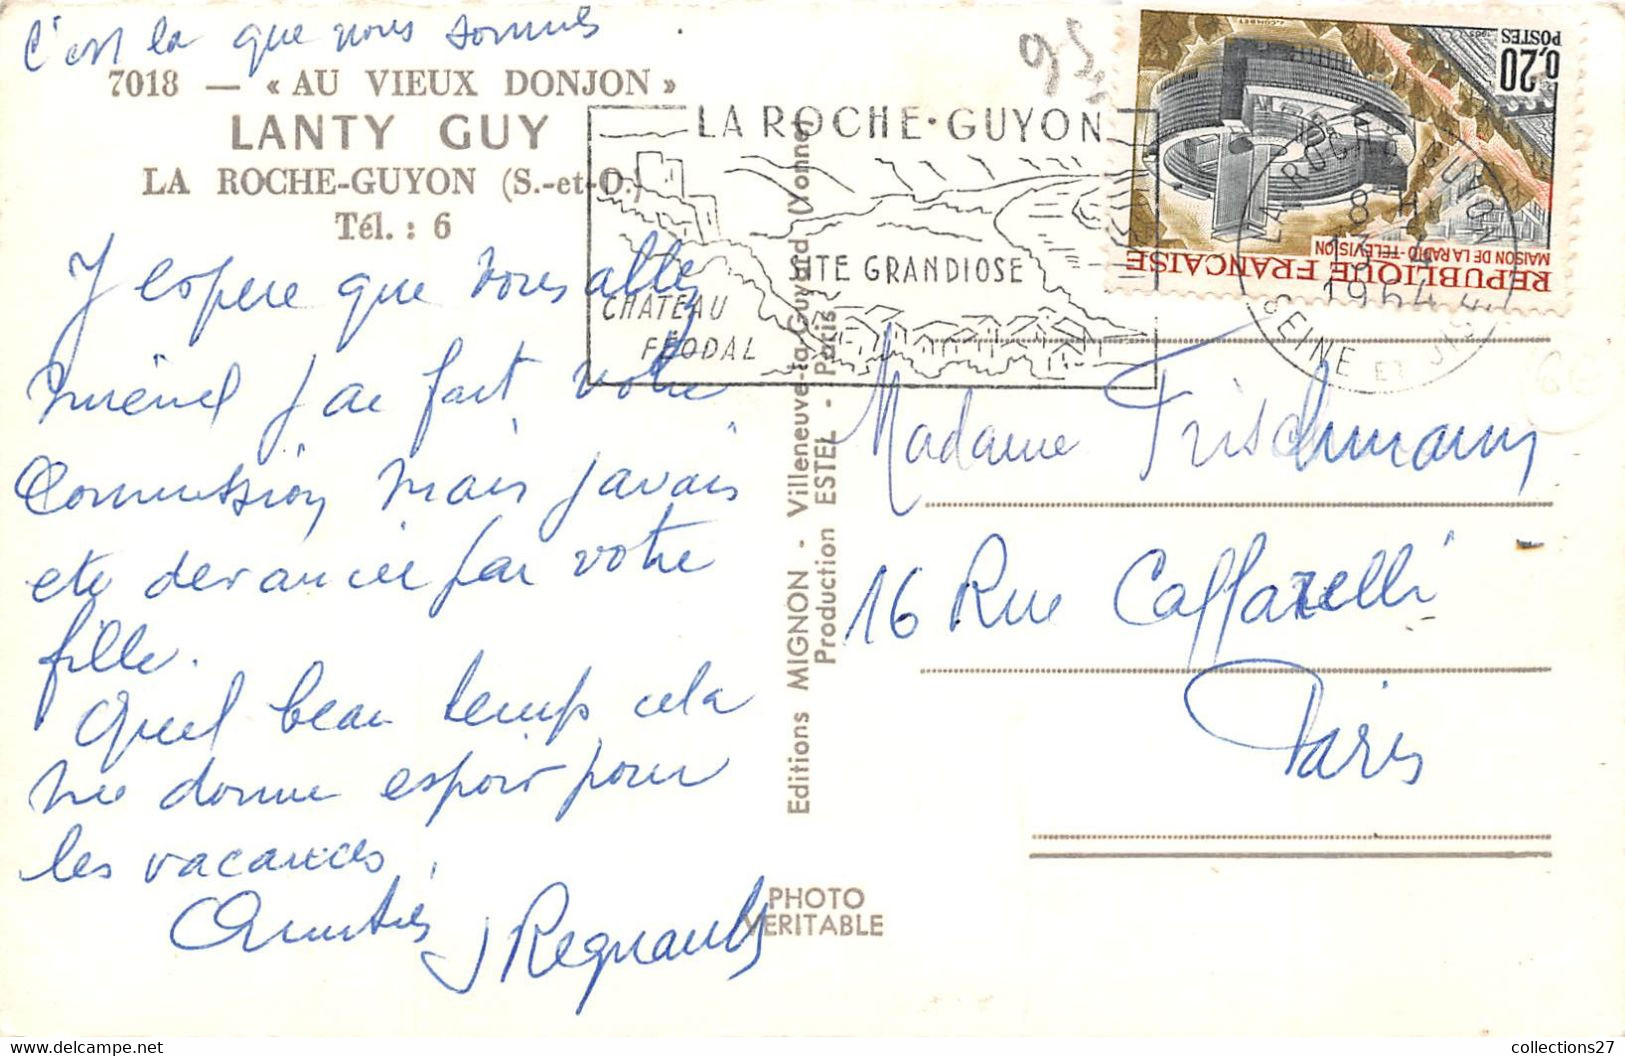 C'est la que nous sommes
7018 — « AU VIEUX DONJON »
LANTY GUY
LA ROCHE-GUYON (S.-et-O.)
Tél. : 6
J'espere que vous allez
mieux j'ai fait votre
Commission mais j'avais
ete devancée par votre
fille.
Quel beau temps cela
me donne espoir pour
les vacances.
Amitiés J Regnault
LA ROCHE-GUYON
SITE GRANDIOSE
CHATEAU
FÉODAL
Editions MIGNON - Villeneuve-la-Guyard (Yonne)
Production ESTEL - Paris
PHOTO
VERITABLE
95
0,20
POSTES
MAISON DE LA RADIO-TÉLÉVISION
REPUBLIQUE FRANÇAISE
LA ROCHE GUYON
1964
SEINE ET OISE
Madame Frischmann
16 Rue Caffarelli
Paris
collections27